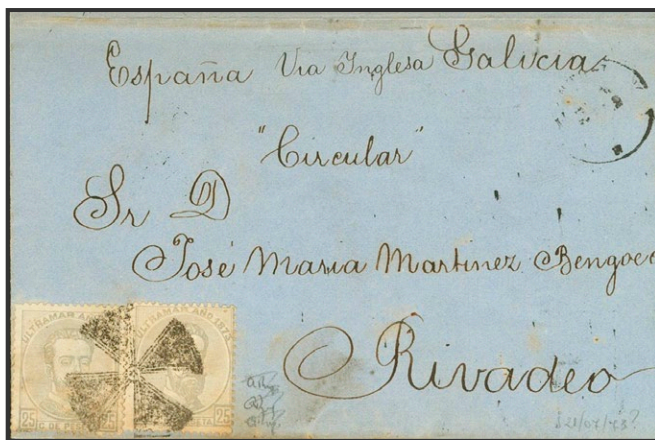 España Via Inglesa Galicia
"Circular"
Sr D
José Maria Martinez Bengoec
Rivadeo
ULTRAMAR AÑO
ULTRAMAR AÑO 1873
25 C. DE PE
PESETA 25